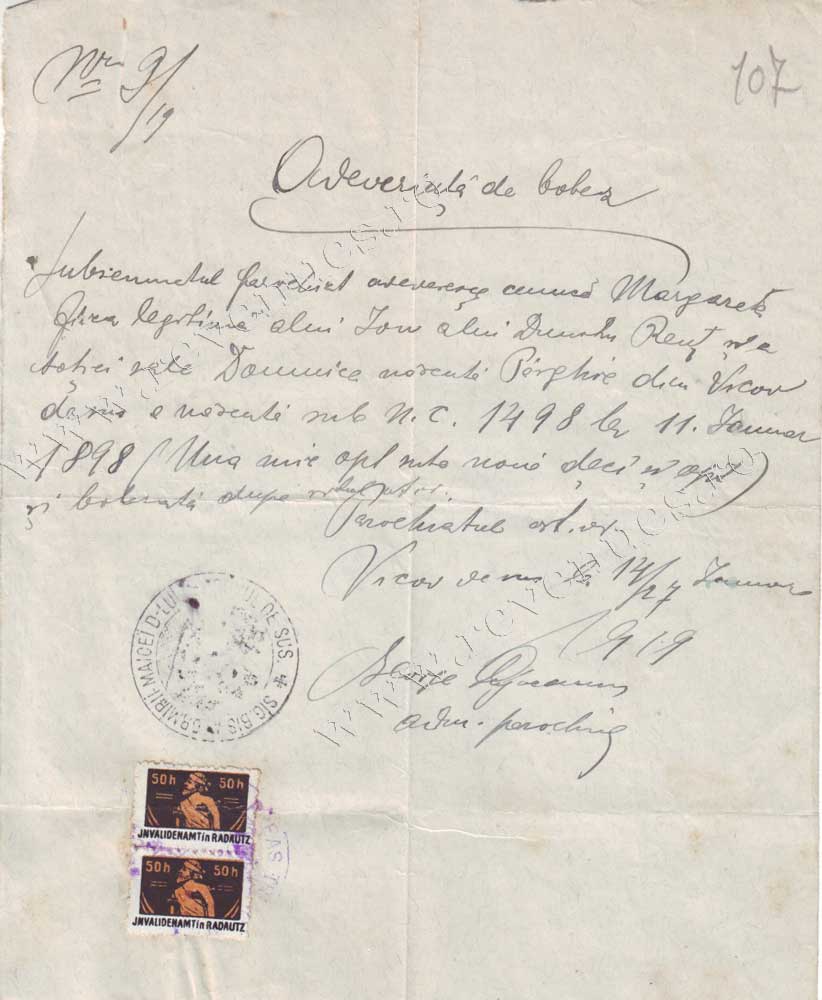 Nru 9/19
107
Adeverință de botez
Subsemnatul parohiat adeverește cumcă Margareta
fiica legitimă alui Ion alui Dumitru Renț și a
soției sale Domnica născută Pârghie din Vicov
de sus e născută sub N.C. 1498 la 11. Januar
1898 (Una mie opt sute nouă deci și opt)
și botezată după
Parochiatul ort. or.
Vicov de sus la 14/27 Januar
1919
adm. parochial
DE SUS. ✠ SIG. BIS. ADORMIRII-MAICEI D-LUI
50 h 50 h
JNVALIDENAMT in RADAUTZ
50 h 50 h
JNVALIDENAMT in RADAUTZ
www.revenues.ro
www.revenues.ro